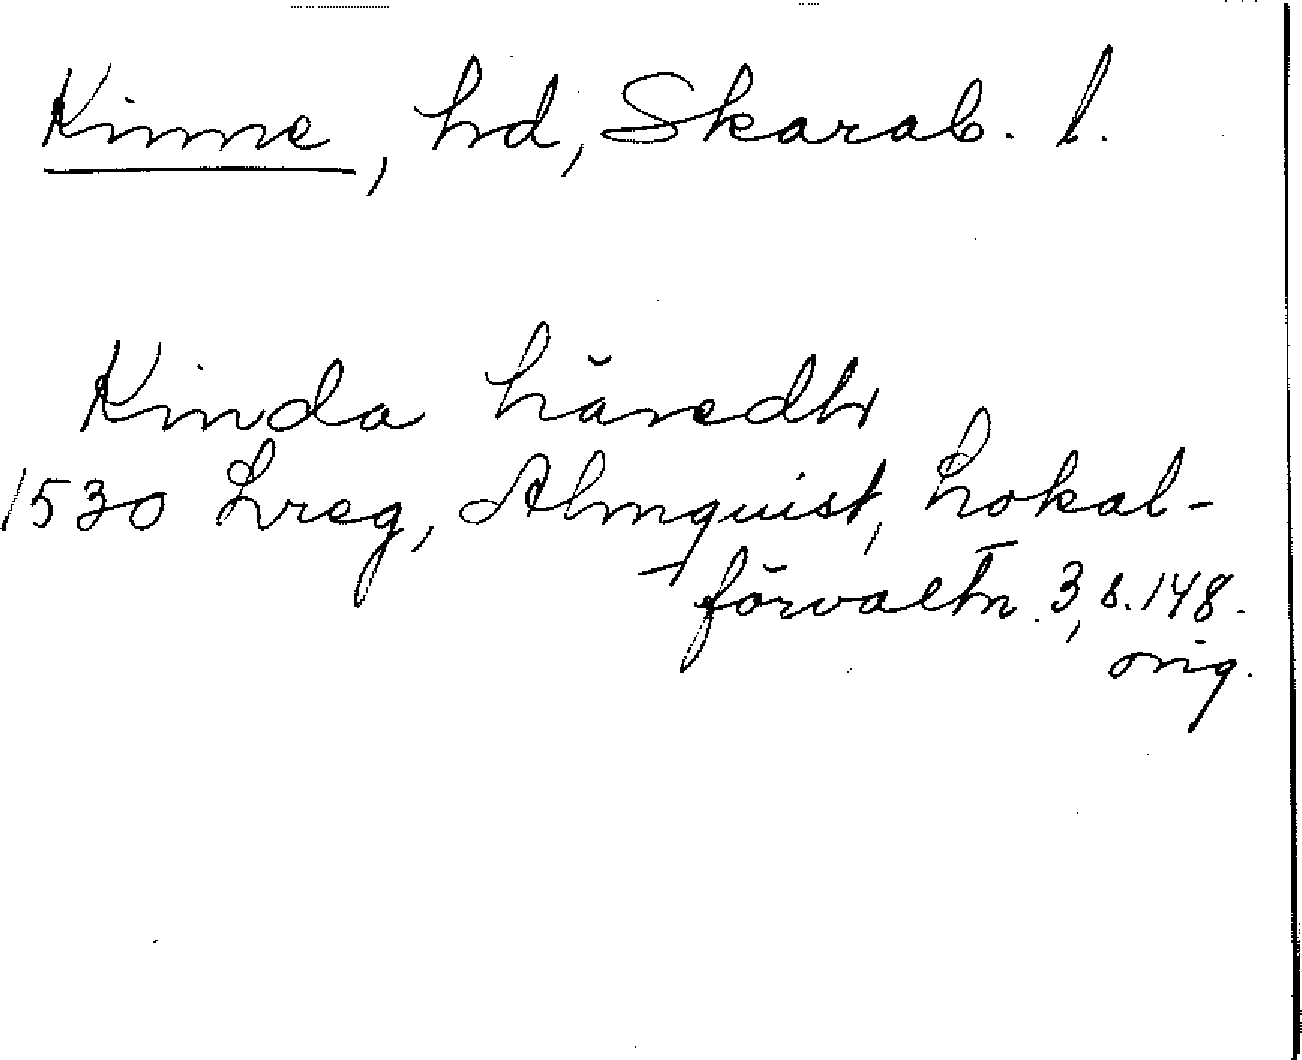 Kinne, hd, Skarab. l.
Kinda häredh
1530 Lreg, Almquist, Lokal-
förvaltn. 3, s. 148.
orig.